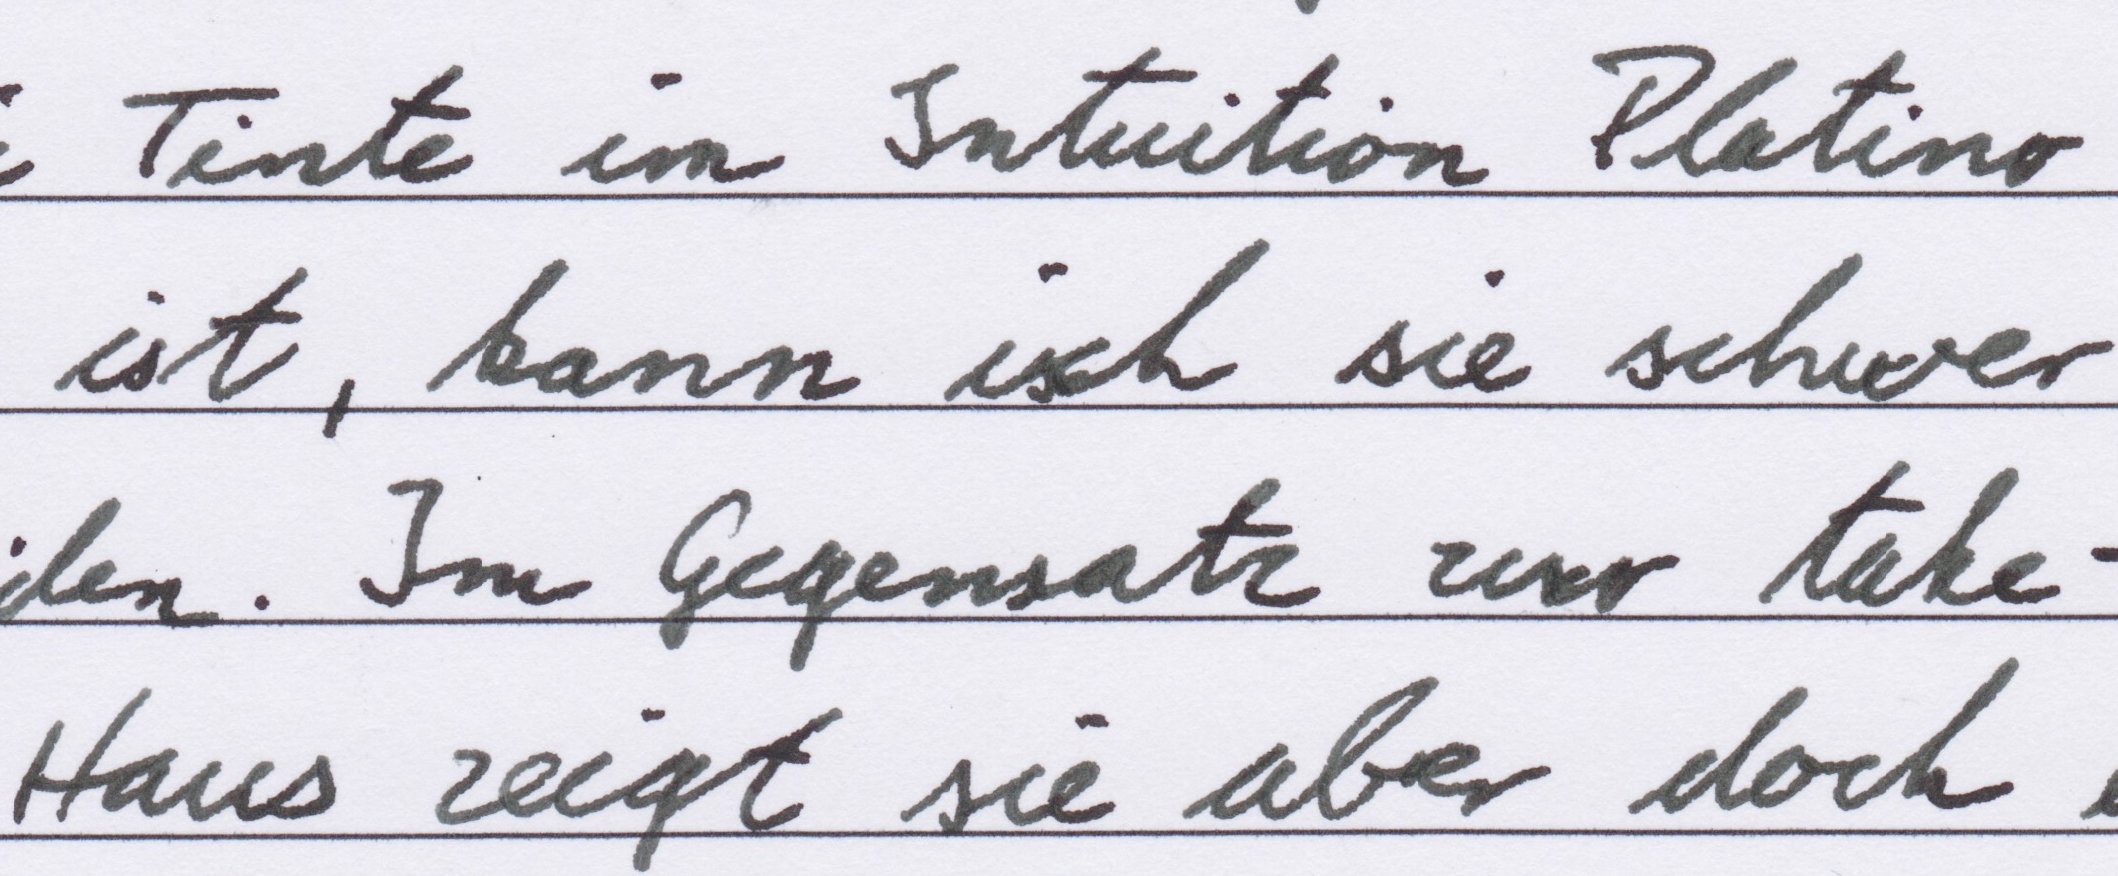 i Tinte im Intuition Platino
ist, kann ich sie schwer
iden. Im Gegensatz zur take-
Haus zeigt sie aber doch